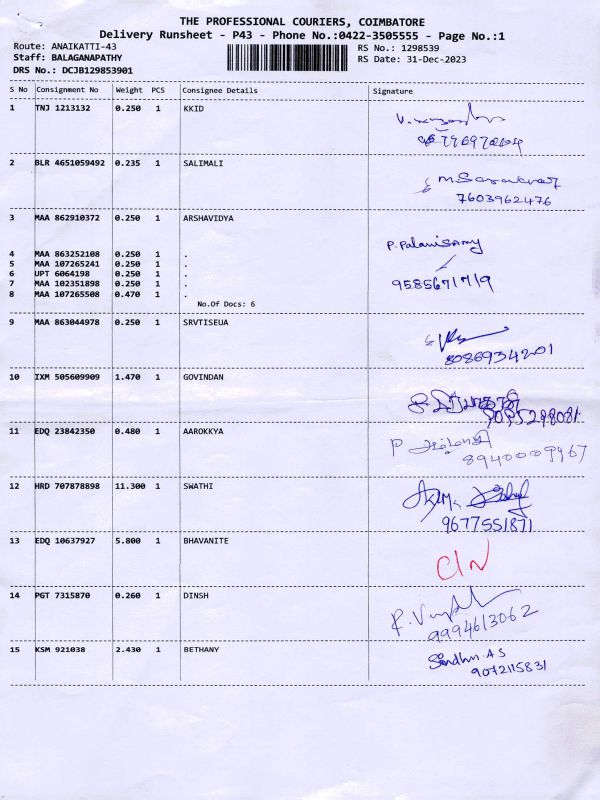 THE PROFESSIONAL COURIERS, COIMBATORE
Delivery Runsheet - P43 - Phone No.:0422-3505555 - Page No.:1
Route: ANAIKATTI-43 RS No.: 1298539
Staff: BALAGANAPATHY RS Date: 31-Dec-2023
DRS No.: DCJB129853901
S No Consignment No Weight PCS Consignee Details Signature
1 TNJ 1213132 0.250 1 KKID
2 BLR 4651059492 0.235 1 SALIMALI
7603962476
3 MAA 862910372 0.250 1 ARSHAVIDYA
P. Palanisamy
4 MAA 863252108 0.250 1 .
5 MAA 107265241 0.250 1 .
6 UPT 6064198 0.250 1 .
7 MAA 102351898 0.250 1 .
9585671719
8 MAA 107265508 0.470 1 .
No.Of Docs: 6
9 MAA 863044978 0.250 1 SRVTISEUA
8086934201
10 IXM 505609909 1.470 1 GOVINDAN
11 EDQ 23842350 0.480 1 AAROKKYA
8940009967
12 HRD 707878898 11.300 1 SWATHI
9677551871
13 EDQ 10637927 5.800 1 BHAVANITE
C/N
14 PGT 7315870 0.260 1 DINSH
9994613062
15 KSM 921038 2.430 1 BETHANY
Sindhu. A S
9072115831